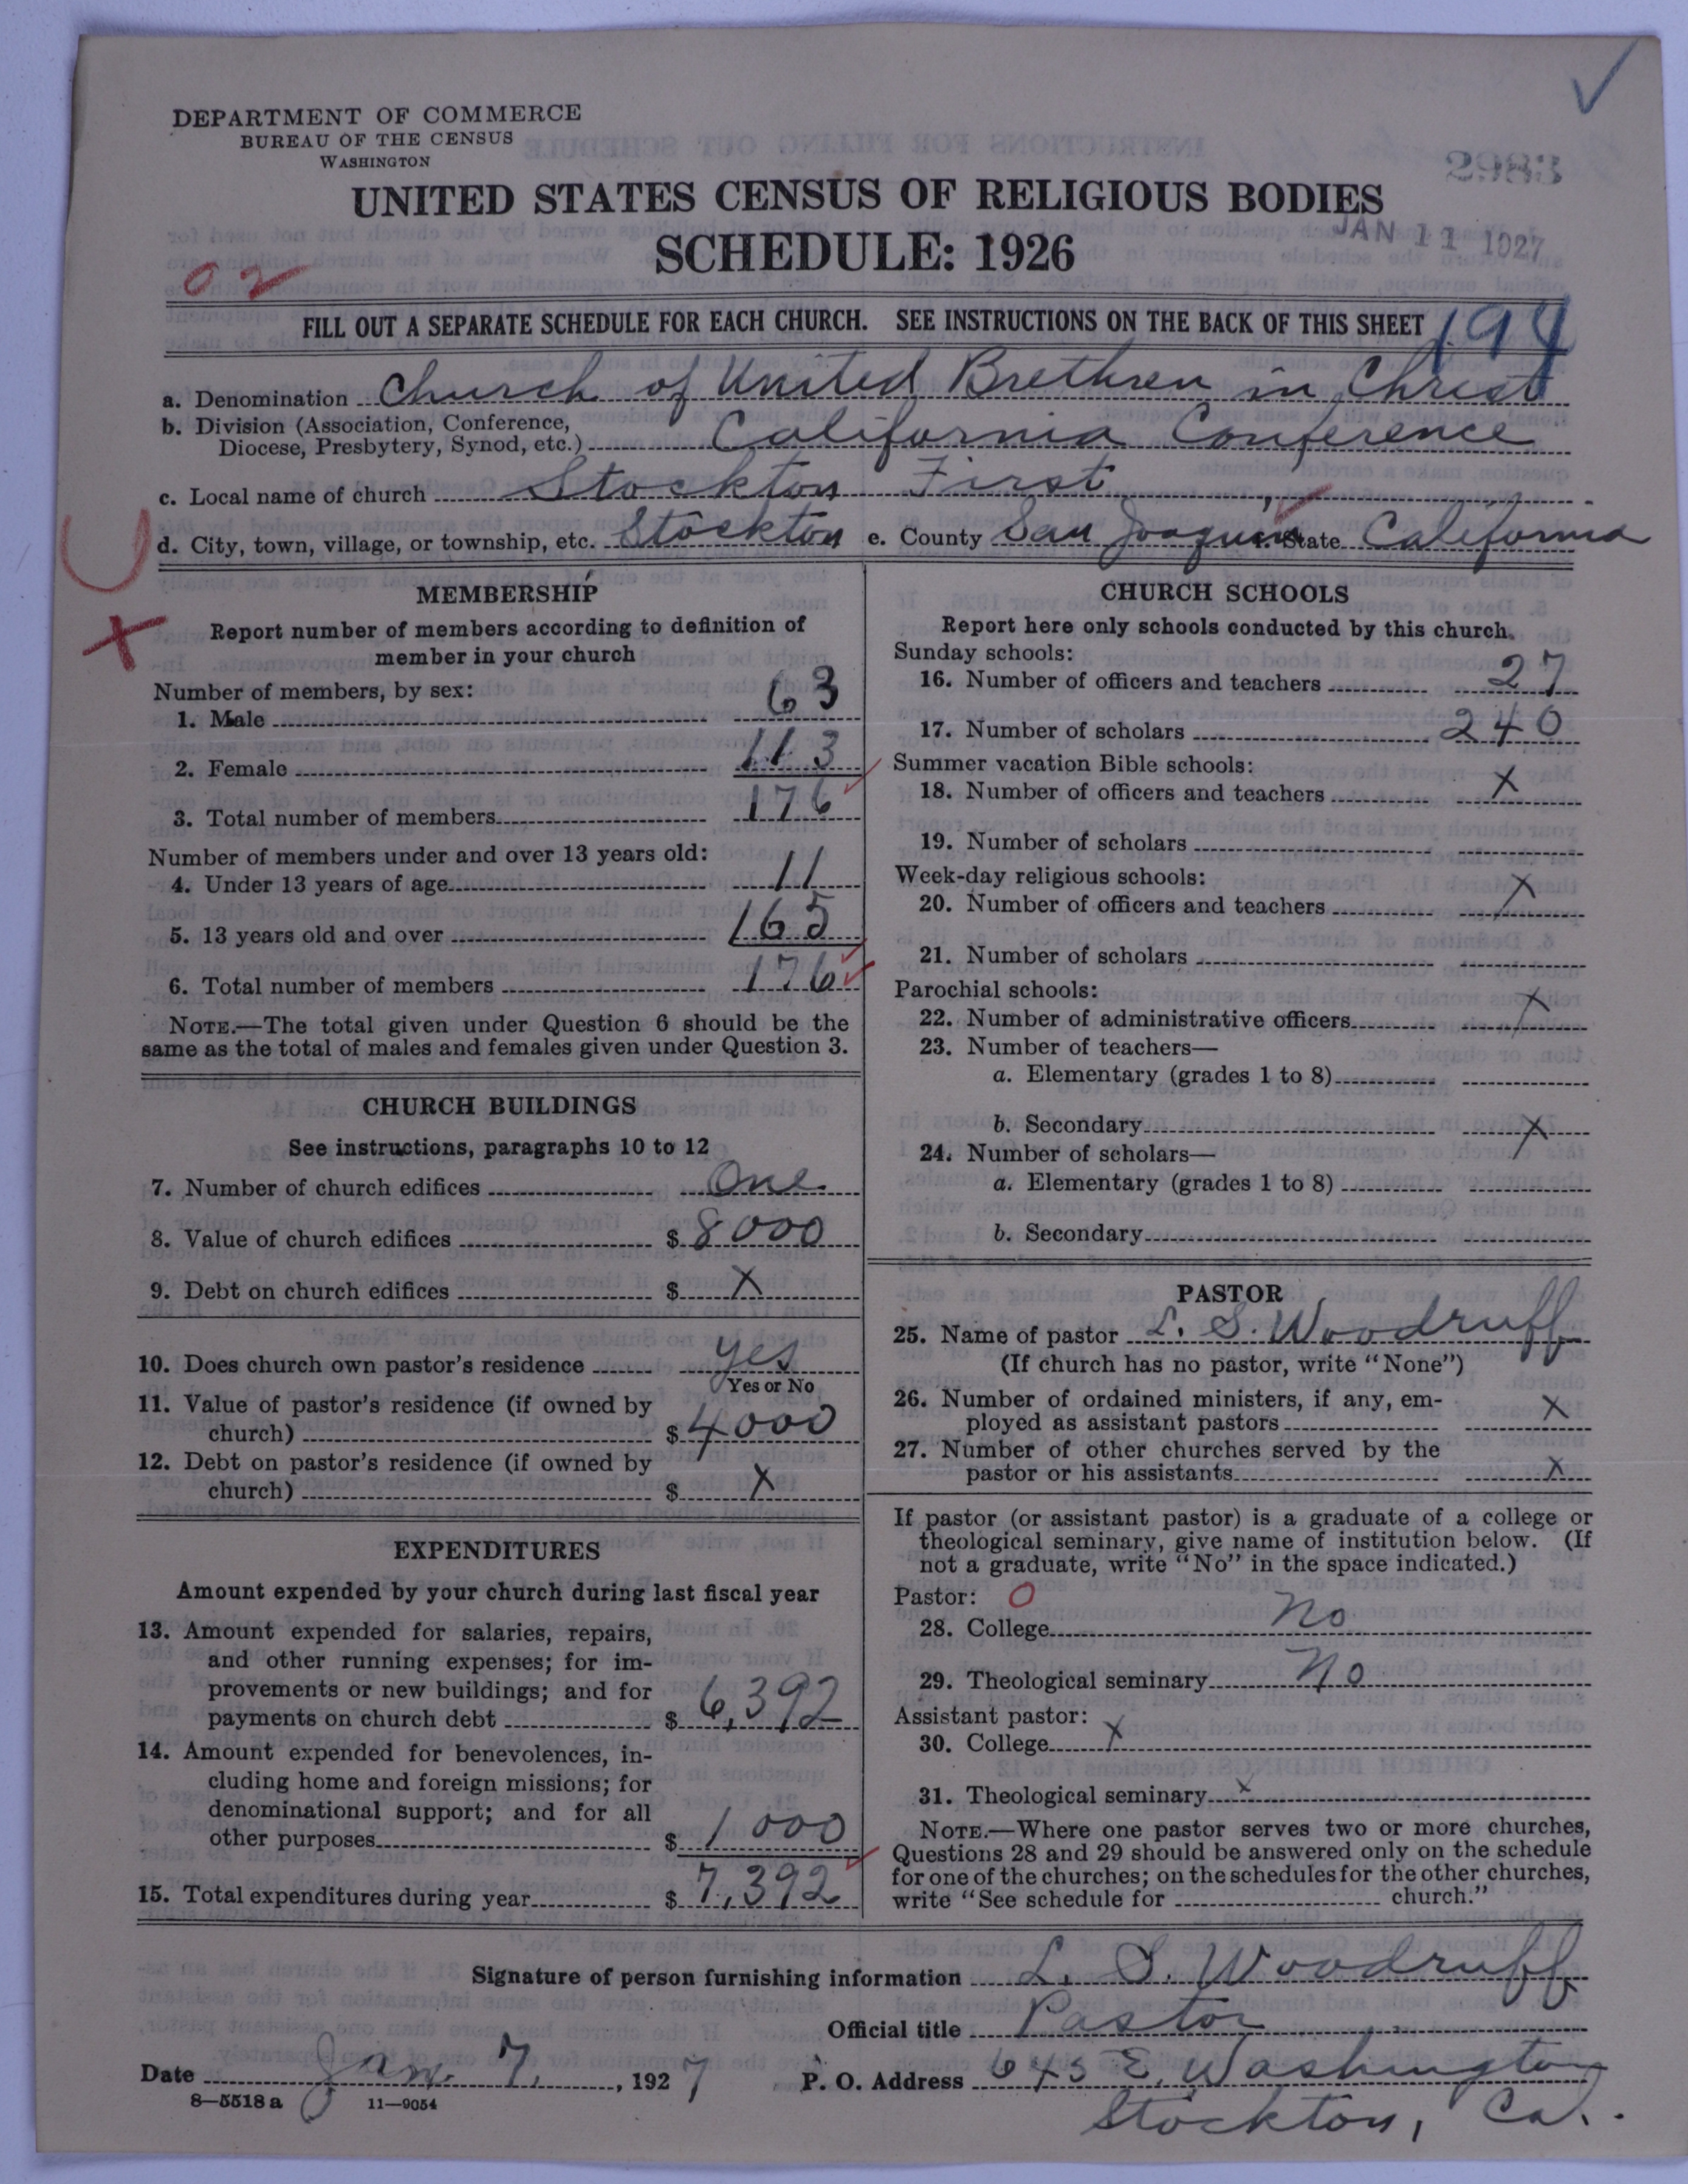 DEPARTMENT OF COMMERCE
BUREAU OF THE CENSUS
WASHINGTON
2983
UNITED STATES CENSUS OF RELIGIOUS BODIES
SCHEDULE: 1926
JAN 11 1927
02
FILL OUT A SEPARATE SCHEDULE FOR EACH CHURCH. SEE INSTRUCTIONS ON THE BACK OF THIS SHEET
194
a. Denomination Church of United Brethren in Christ
b. Division (Association, Conference, Diocese, Presbytery, Synod, etc.) California Conference
c. Local name of church Stockton First
d. City, town, village, or township, etc. Stockton e. County San Joaquin f. State California
MEMBERSHIP
Report number of members according to definition of
member in your church
Number of members, by sex:
1. Male 63
2. Female 113
3. Total number of members 176
Number of members under and over 13 years old:
4. Under 13 years of age 11
5. 13 years old and over 165
6. Total number of members 176
NOTE.—The total given under Question 6 should be the
same as the total of males and females given under Question 3.
CHURCH BUILDINGS
See instructions, paragraphs 10 to 12
7. Number of church edifices One
8. Value of church edifices $ 8000
9. Debt on church edifices $ X
10. Does church own pastor's residence yes
Yes or No
11. Value of pastor's residence (if owned by
church) $ 4000
12. Debt on pastor's residence (if owned by
church) $ X
EXPENDITURES
Amount expended by your church during last fiscal year
13. Amount expended for salaries, repairs,
and other running expenses; for im-
provements or new buildings; and for
payments on church debt $ 6,392
14. Amount expended for benevolences, in-
cluding home and foreign missions; for
denominational support; and for all
other purposes $ 1000
15. Total expenditures during year $ 7,392
CHURCH SCHOOLS
Report here only schools conducted by this church.
Sunday schools:
16. Number of officers and teachers 27
17. Number of scholars 240
Summer vacation Bible schools:
18. Number of officers and teachers X
19. Number of scholars
Week-day religious schools:
20. Number of officers and teachers X
21. Number of scholars
Parochial schools:
22. Number of administrative officers X
23. Number of teachers—
a. Elementary (grades 1 to 8)
b. Secondary X
24. Number of scholars—
a. Elementary (grades 1 to 8)
b. Secondary
PASTOR
25. Name of pastor L. S. Woodruff
(If church has no pastor, write "None")
26. Number of ordained ministers, if any, em-
ployed as assistant pastors X
27. Number of other churches served by the
pastor or his assistants X
If pastor (or assistant pastor) is a graduate of a college or
theological seminary, give name of institution below. (If
not a graduate, write "No" in the space indicated.)
Pastor: 0
28. College No
29. Theological seminary No
Assistant pastor:
30. College X
31. Theological seminary X
NOTE.—Where one pastor serves two or more churches,
Questions 28 and 29 should be answered only on the schedule
for one of the churches; on the schedules for the other churches,
write "See schedule for church."
Signature of person furnishing information L. S. Woodruff
Official title Pastor
Date Jan. 7, 1927 P. O. Address 645 E. Washington
Stockton, Ca.
8—5518 a 11—9054